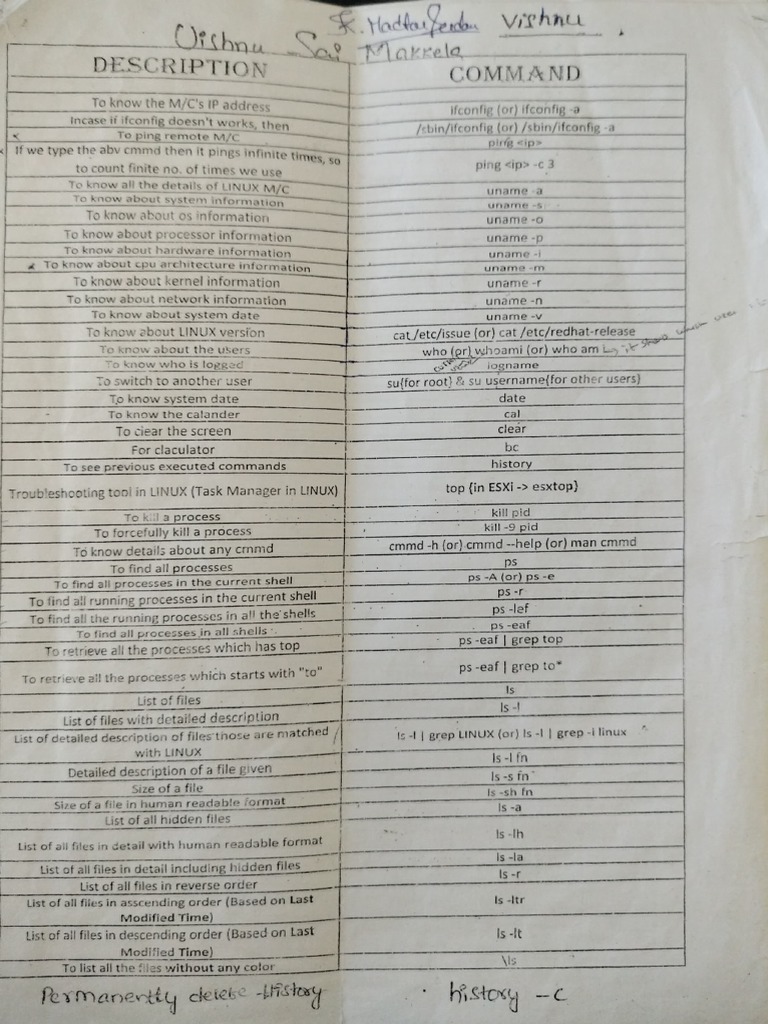 Vishnu
Vishnu Sai Makkela
DESCRIPTION COMMAND
To know the M/C's IP address ifconfig (or) ifconfig -a
Incase if ifconfig doesn't works, then /sbin/ifconfig (or) /sbin/ifconfig -a
To ping remote M/C ping <ip>
If we type the abv cmmd then it pings infinite times, so
to count finite no. of times we use ping <ip> -c 3
To know all the details of LINUX M/C uname -a
To know about system information uname -s
To know about os information uname -o
To know about processor information uname -p
To know about hardware information uname -i
To know about cpu architecture information uname -m
To know about kernel information uname -r
To know about network information uname -n
To know about system date uname -v
To know about LINUX version cat /etc/issue (or) cat /etc/redhat-release
To know about the users who (or) whoami (or) who am i
To know who is logged logname
To switch to another user su{for root} & su username{for other users}
To know system date date
To know the calander cal
To clear the screen clear
For claculator bc
To see previous executed commands history
Troubleshooting tool in LINUX (Task Manager in LINUX) top {in ESXi -> esxtop}
To kill a process kill pid
To forcefully kill a process kill -9 pid
To know details about any cmmd cmmd -h (or) cmmd --help (or) man cmmd
To find all processes ps
To find all processes in the current shell ps -A (or) ps -e
To find all running processes in the current shell ps -r
To find all the running processes in all the shells ps -lef
To find all processes in all shells ps -eaf
To retrieve all the processes which has top ps -eaf | grep top
To retrieve all the processes which starts with "to" ps -eaf | grep to*
List of files ls
List of files with detailed description ls -l
List of detailed description of files those are matched
with LINUX ls -l | grep LINUX (or) ls -l | grep -i linux
Detailed description of a file given ls -l fn
Size of a file ls -s fn
Size of a file in human readable format ls -sh fn
List of all hidden files ls -a
List of all files in detail with human readable format ls -lh
List of all files in detail including hidden files ls -la
List of all files in reverse order ls -r
List of all files in asscending order (Based on Last
Modified Time) ls -ltr
List of all files in descending order (Based on Last
Modified Time) ls -lt
To list all the files without any color \ls
Permanently delete History history -c